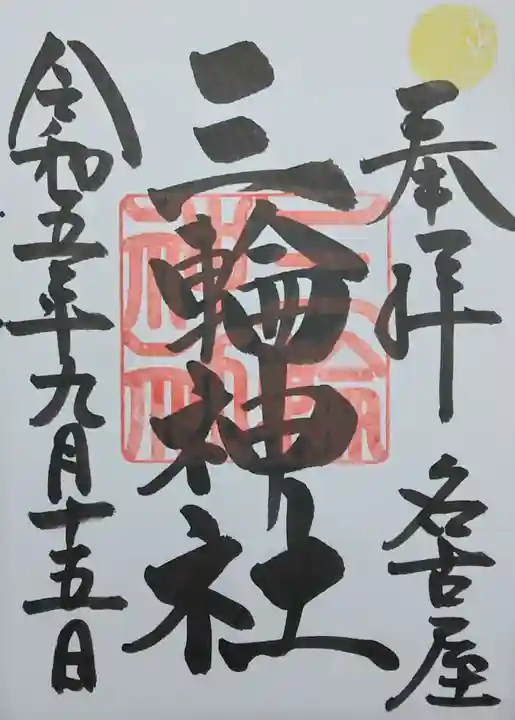 奉拝 名古屋
三輪神社
令和五年九月十五日